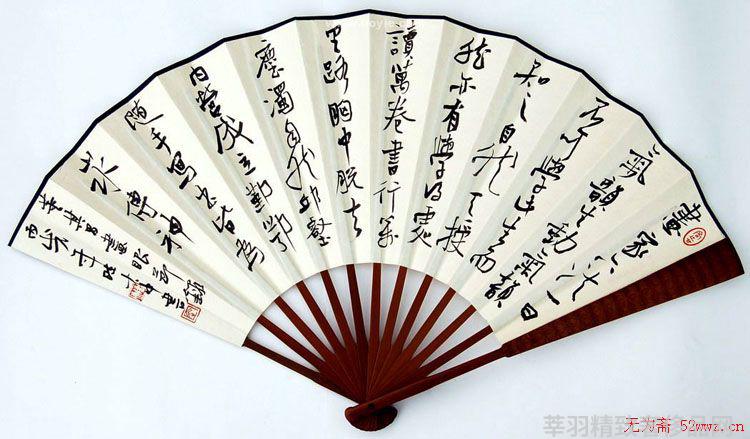 畫家六法一曰
氣韻生動氣韻
不可學此生而
知之自然天授
然亦有學得處
讀萬卷書行萬
里路胸中脫去
塵濁自然邱壑
內營成立鄞鄂
隨手寫出皆為
山水傳神
董其昌畫
莘羽精致
无为斋 52wwz.cn